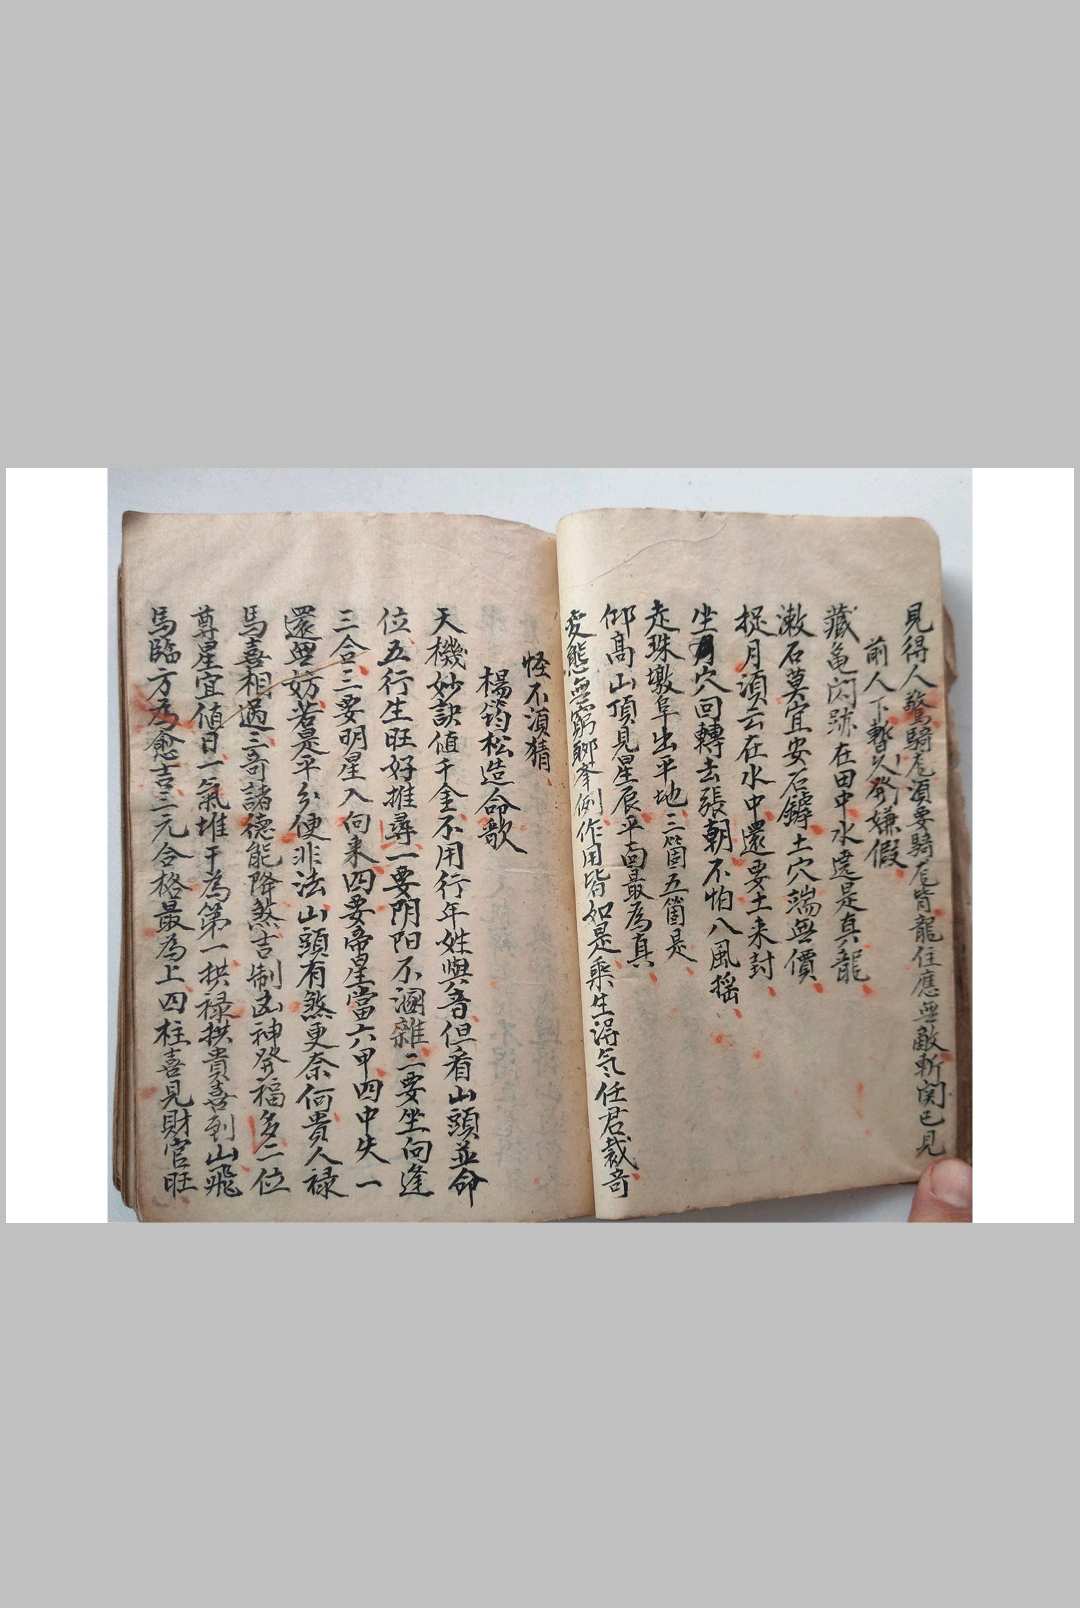 見得人驚騎尨湏要騎尨背龍住應無敵斬関已見
前人下暫以發嫌假
藏亀閃跡在田中水遶是真龍
漱石莫宜安石鏬土穴端無價
捉月湏云在水中還要土来封
坐穴回轉去張朝不怕八風搖
走珠墩阜出平地三箇五箇是
仰高山頂見星辰平面最為真
変態無窮聊举例作用皆如是乘生淂气任君裁竒
怪不湏猜
楊筠松造命歌
天機妙訣值千金不用行年姓與音但看山頭並命
位五行生旺好推尋一要阴阳不溷雜二要坐向逢
三合三要明星入向来四要帝星當六甲四中失一
還無妨若是平分便非法山頭有煞更奈何貴人禄
馬喜相遇三竒諸德能降煞吉制凶神發福多二位
尊星宜值日一氣堆干為第一拱禄拱貴喜到山飛
馬臨方為愈吉三元合格最為上四柱喜見財官旺